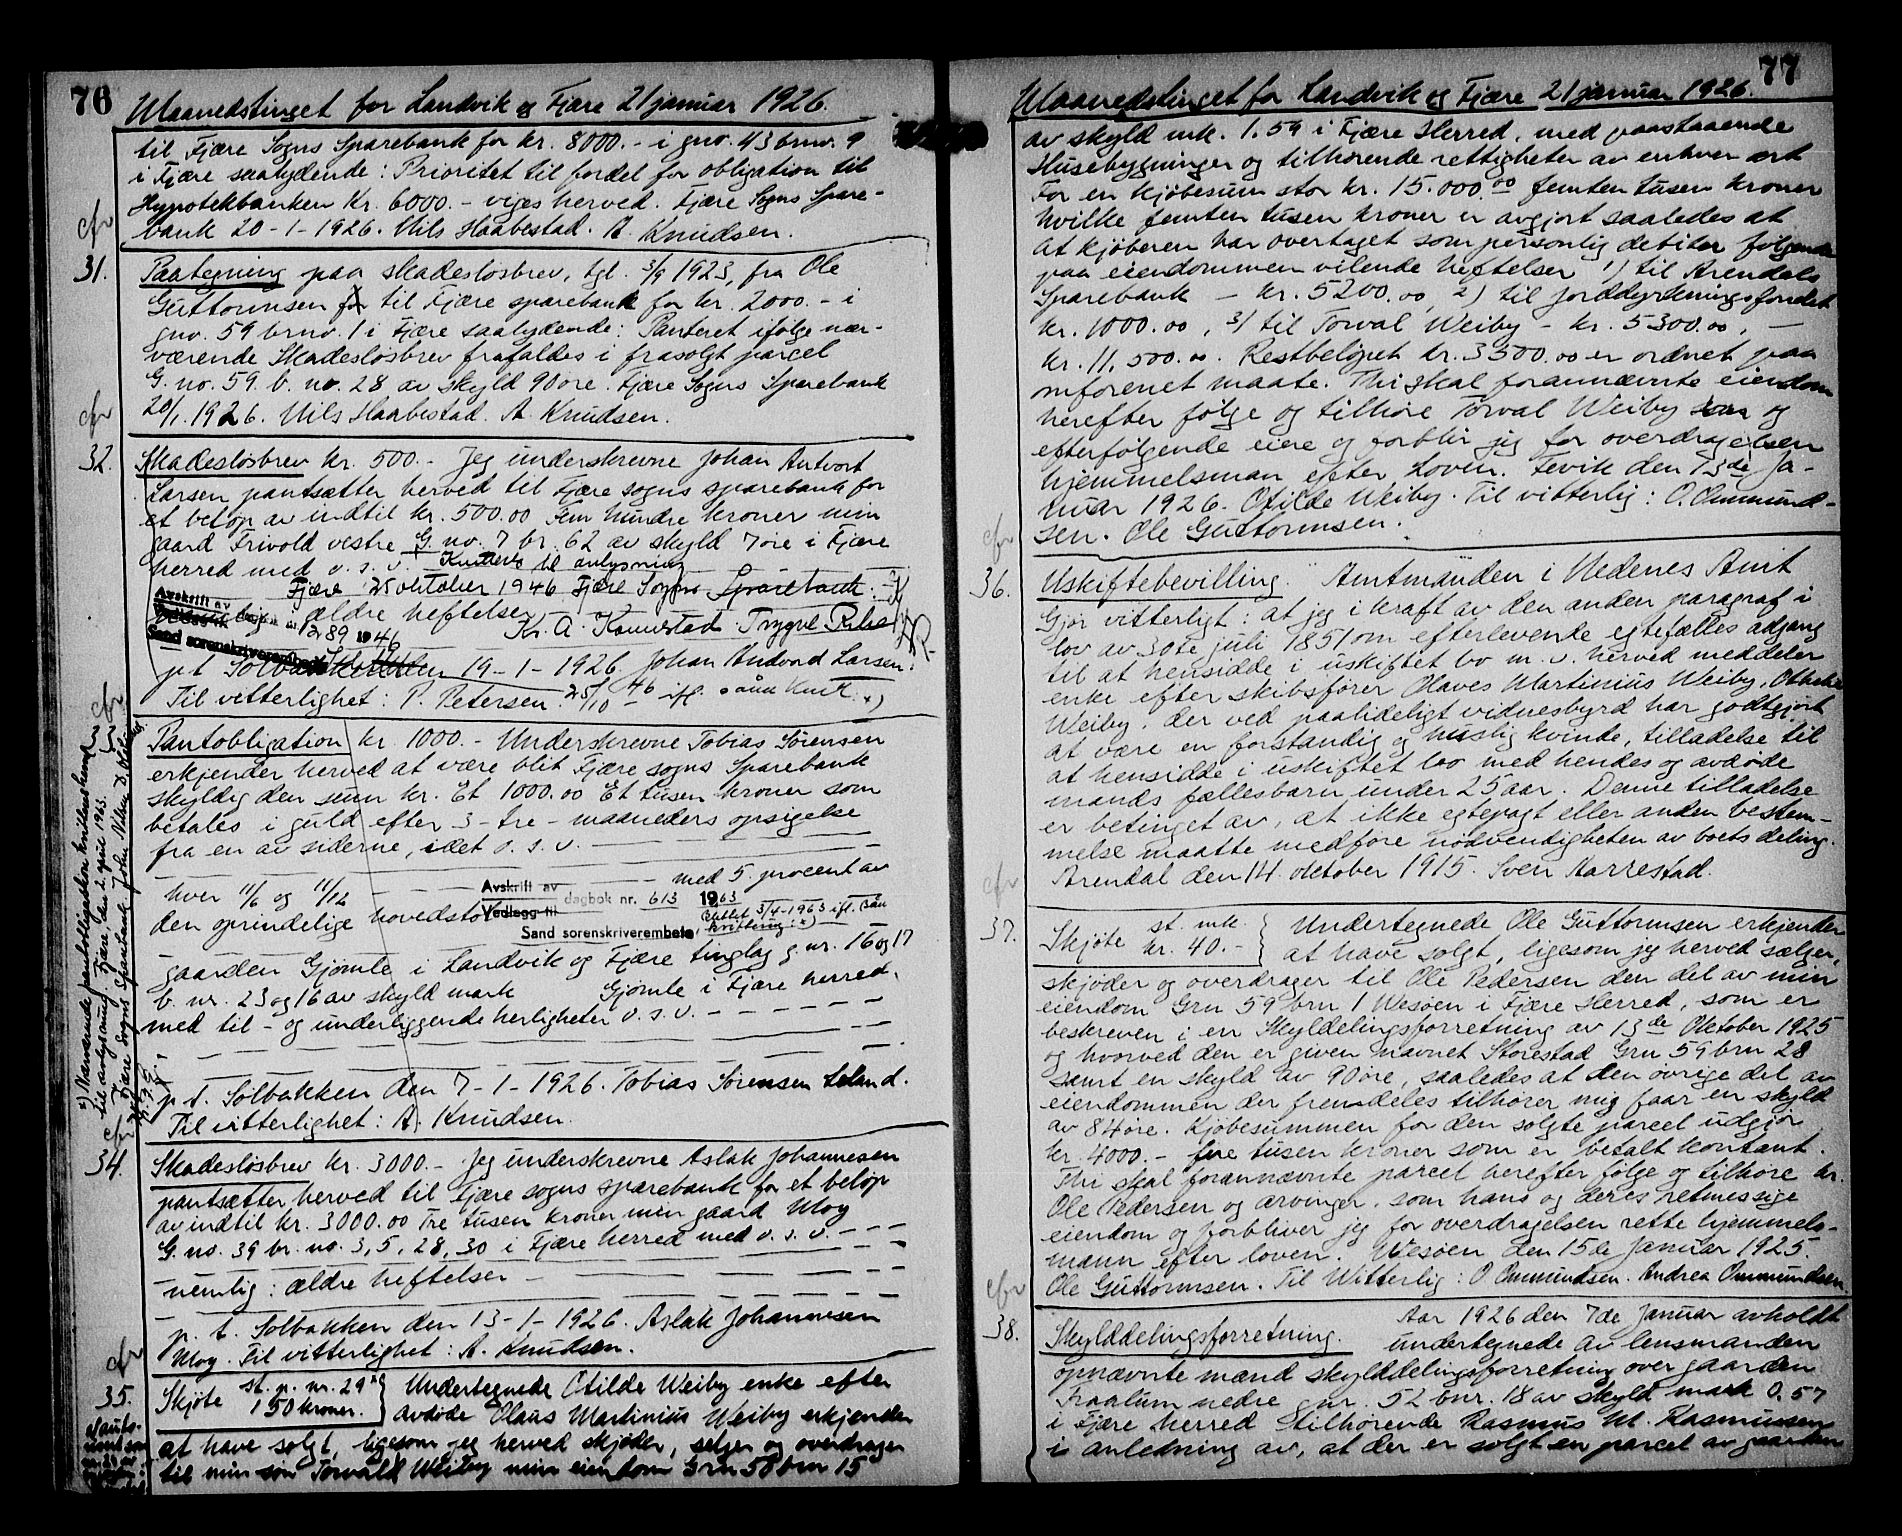 76
Maanedstinget for Landvik og Fjære 21 januar 1926.
til Fjære Sogns Sparebank for kr. 8000.- i gno. 43 brno. 9
i Fjære saalydende: Prioritet til fordel for obligation til
Hypotekbanken Kr. 6000.- viges herved. Fjære Sogns Spare-
bank 20-1-1926. Nils Haabestad. A. Knudsen.
cfr
31.
Paategning paa skadesløsbrev, tgl. 3/9 1923, fra Ole
Guttormsen for til Fjære sparebank for kr. 2000.- i
gno. 59 brno. 1 i Fjære saalydende: Panteret ifølge nær-
værende Skadesløsbrev frafaldes i frasolgt parcel
G. no. 59. b. no. 28 av skyld 90 øre. Fjære Sogns Sparebank
20/1. 1926. Nils Haabestad. A. Knudsen.
cfr
32.
Skadesløsbrev kr. 500.- Jeg underskrevne Johan Antvort
Larsen pantsætter herved til Fjære sogns sparebank for
et beløp av indtil kr. 500.00 Fem hundre kroner min
gaard Frivold vestre G. no. 7 br. 62 av skyld 7 øre i Fjære
herred med o. s. v. Kvitteres til avlysning
Fjære 25 oktober 1946 Fjære Sogns Sparebank.
ældre heftelser
Avskrift av
dagbok nr. 1289 1946
Sand sorenskriverembete
p.t. Solbakken 19-1-1926. Johan Andvord Larsen.
Til vitterlighet: P. Petersen. 25/10 - 46 ifl. sånn Kvitt. x)
cfr
Pantobligation kr. 1000.- Underskrevne Tobias Sørensen
erkjender herved at være blit Fjære sogns Sparebank
skyldig den sum kr. Et 1000.00 Et tusen kroner som
betales i guld efter 3-tre-maaneders opsigelse
fra en av siderne, idet o. s. v.
hver 11/6 og 11/12 med 5 procent av
den oprindelige hovedstol
Avskrift av
Vedlegg til dagbok nr. 613 1963
Slettet 3/4-1963 ifl. sån
kvittering: x)
Sand sorenskriverembete
gaarden Gjømle i Landvik og Fjære tinglag g. nr. 16 og 17
b. nr. 23 og 16 av skyld mark Gjømle i Fjære herred.
med til- og underliggende herligheter o. s. v.
p. t. Solbakken den 7-1-1926. Tobias Sørensen
Til vitterlighet: A. Knudsen.
x) Nærværende pantobligation kvitteres herved
til avlysning. Fjære, den 2. april 1963.
Fjære Sogns Sparebank
cfr
34.
Skadesløsbrev kr. 3000.- Jeg underskrevne Aslak Johannesen
pantsætter herved til Fjære sogns sparebank for et beløp
av indtil kr. 3000.00 Tre tusen kroner min gaard Moy
G. no. 39 br. no. 3, 5, 28, 30 i Fjære herred med o. s. v.
nemlig: ældre heftelser
p. t. Solbakken den 13-1-1926. Aslak Johannesen
Moy. Til vitterlighet: A. Knudsen.
cfr
35.
Skjøte st. p. nr. 29
150 kroner.
Undertegnede Otilde Weiby enke efter
avdøde Olaus Martinius Weiby erkjender
at have solgt, ligesom jeg herved skjøder, selger og overdrager
til min søn Torvald Weiby min eiendom Grn 58 brn 15
77
Maanedstinget for Landvik og Fjære 21 januar 1926.
av skyld mk. 1.59 i Fjære Herred, med paastaaende
Husebygninger og tilhørende rettigheter av enhver art
For en kjøbesum stor kr. 15.000.00 femten tusen kroner
hvilke femten tusen kroner er avgjort saaledes at
at kjøberen har overtaget som personlig debitor følgende
paa eiendommen vilende heftelser 1) til Arendals
Sparebank - kr. 5200.00, 2) til jorddyrkningsfondet
kr. 1000.00, 3/ til Torval Weiby - kr. 5300.00, -
kr. 11,500.00. Restbeløpet kr. 3500.00 er ordnet paa
omforenet maate. Thi skal forannævnte eiendom
herefter følge og tilhøre Torval Weiby og
efterfølgende eiere og forblir jeg for overdragelsen
hjemmelsman efter Loven. Fevik den 13de Ja-
nuar 1926. Otilde Weiby. Til vitterlig: O. Ommund-
sen. Ole Guttormsen.
cfr
36.
Uskiftebevilling. Amtmanden i Nedenes Amt
Gjør vitterligt: at jeg i kraft av den anden paragraf i
lov av 30te juli 1851 om efterlevende egtefælles adgang
til at hensidde i uskiftet bo m. v. herved meddeler
enke efter skibsfører Olaves Martinius Weiby,
Weiby, der ved paalideligt vidnesbyrd har godtgjort
at være en forstandig og huslig kvinde, tilladelse til
at hensidde i uskiftet bo med hendes og avdøde
mands fællesbarn under 25 aar. Denne tilladelse
er betinget av, at ikke egtepagt eller anden bestem-
melse maatte medføre nødvendigheten av boets deling.
Arendal den 14. oktober 1915. Sven Aarrestad.
cfr
37.
Skjøte st. mk.
kr. 40.-
Undertegnede Ole Guttormsen erkjender
at have solgt, ligesom jeg herved sælger,
skjøder og overdrager til Ole Pedersen den del av min
eiendom Grn 59 brn 1 Wesøen i Fjære Herred, som er
beskreven i en Skylddelingsforretning av 13de Oktober 1925
og hvorved den er given navnet Storestad Grn 59 brn 28
samt en skyld av 90 øre, saaledes at den øvrige del av
eiendommen der fremdeles tilhører mig faar en skyld
av 84 øre. Kjøbesummen for den solgte parcel utgjør
kr. 4000.- fire tusen kroner som er betalt kontant.
Thi skal forannævnte parcel herefter følge og tilhøre hr.
Ole Pedersen og arvinger, som hans og deres retmessige
eiendom og forbliver jeg for overdragelsen rette hjemmels-
mann efter loven. Wesøen den 15de Januar 1925.
Ole Guttormsen. Til Witterlig: O Ommundsen. Andrea Ommundsen.
cfr
38.
Skylddelingsforretning. Aar 1926 den 7de Januar avholdt
undertegnede av lensmanden
opnævnte mænd skylddelingsforretning over gaarden
nedre gnr. 52 bnr. 18 av skyld mark 0.57
i Fjære herred tilhørende Rasmus M. Rasmussen
i anledning av, at der er solgt en parcel av gaarden